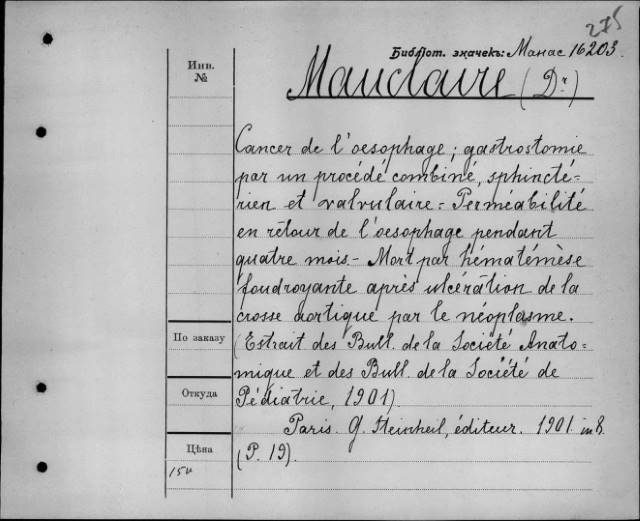 275
Библіот. значекъ: Манас 16203.
Инв.
№
Mauclaire (Dr)
Cancer de l'oesophage; gastrostomie
par un procédé combiné, sphincté=
rien et valvulaire = Perméabilité
en retour de l'oesophage pendant
quatre mois.- Mort par hématémèse
foudroyante après ulcération de la
crosse aortique par le néoplasme.
По заказу
(Estrait des Bull. de la Société Anato=
mique et des Bull. de la Société de
Откуда
Pédiatrie, 1901)
Paris. G. Steinheil, éditeur. 1901. in 8.
Цѣна
(P. 19).